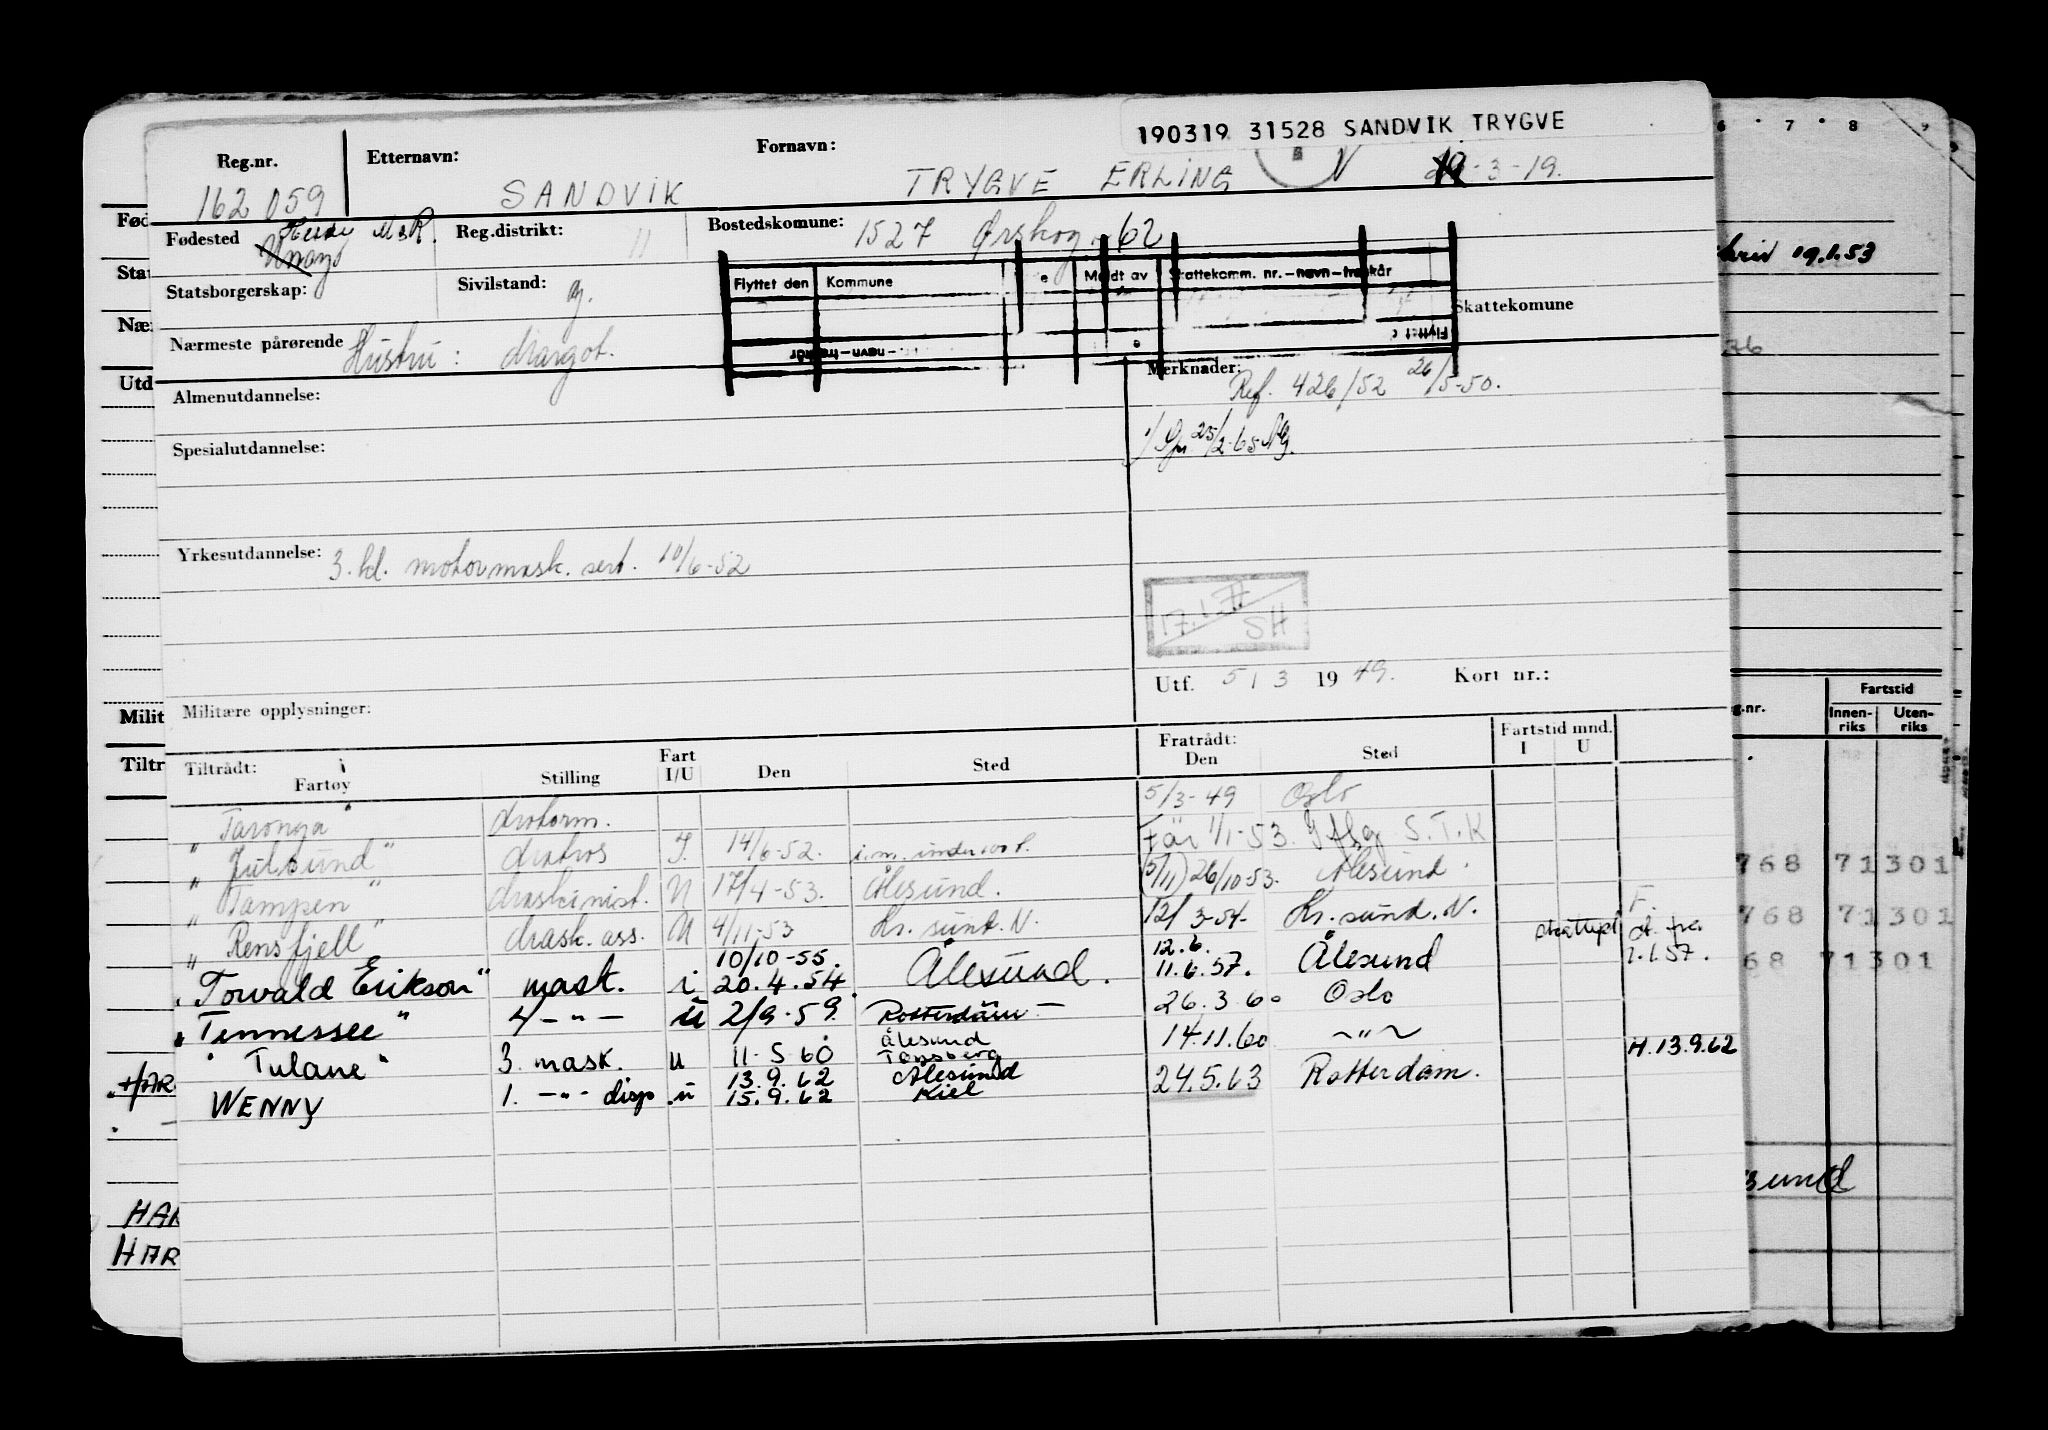 190319 31528 SANDVIK TRYGVE
Reg.nr. Etternavn: Fornavn:
162 059 SANDVIK TRYGVE ERLING 19-3-19.
Fødested M&R. Reg.distrikt: 11 Bostedskommune: 1527 Ørskog 62
Statsborgerskap: Sivilstand: g.
Flyttet den Kommune e Meldt av Skattekomm. nr.–navn–trekkår
Skattekomune
Nærmeste pårørende Hustru: Margot.
Merknader:
Ref. 426/52 26/5-50.
Almenutdannelse:
25/2-65
Spesialutdannelse:
Yrkesutdannelse: 3. kl. motormask. sert. 10/6-52
17.1.
SH
Utf. 5/3 1949. Kort nr.:
Militære opplysninger:
Tiltrådt: Fartøy Stilling Fart I/U Den Sted Fratrådt: Den Sted Fartstid mnd. I U
"Taronga" Motorm. 5/3-49 Oslo
"Julsund" Matros I. 14/6-52. i.m. under 100 t. 1/1-53. S.T.K
"Tampen" Maskinist. U 17/4-53. Ålesund. (5/11) 26/10-53. Ålesund.
"Rensfjell" Mask. ass. U 4/11-53 Kr.sund. N. 12/3-54- Kr.sund. N. F.
10/10-55. 12.6.
"Torvald Erikson" mask. i 20.4.54. Ålesund. 11.6.57. Ålesund 1.1.57.
"Tennessee" 4 -"- u 2/9-59. Rotterdam 26.3.60 Oslo
Ålesund
"Tulane" 3. mask. u 11-5 60 Tønsberg 14.11.60 -"- H. 13.9.62
13.9.62 Ålesund
WENNY 1. -"- disp. u 15.9.62 Kiel 24.5.63 Rotterdam.
6 7 8 9
19.1.53
Fød
Stat
Nær
Utd
Milit
Tiltr
g.nr. Fartstid
Innen-riks Uten-riks
768 71301
768 71301
68 71301
sund
HAR
HAR